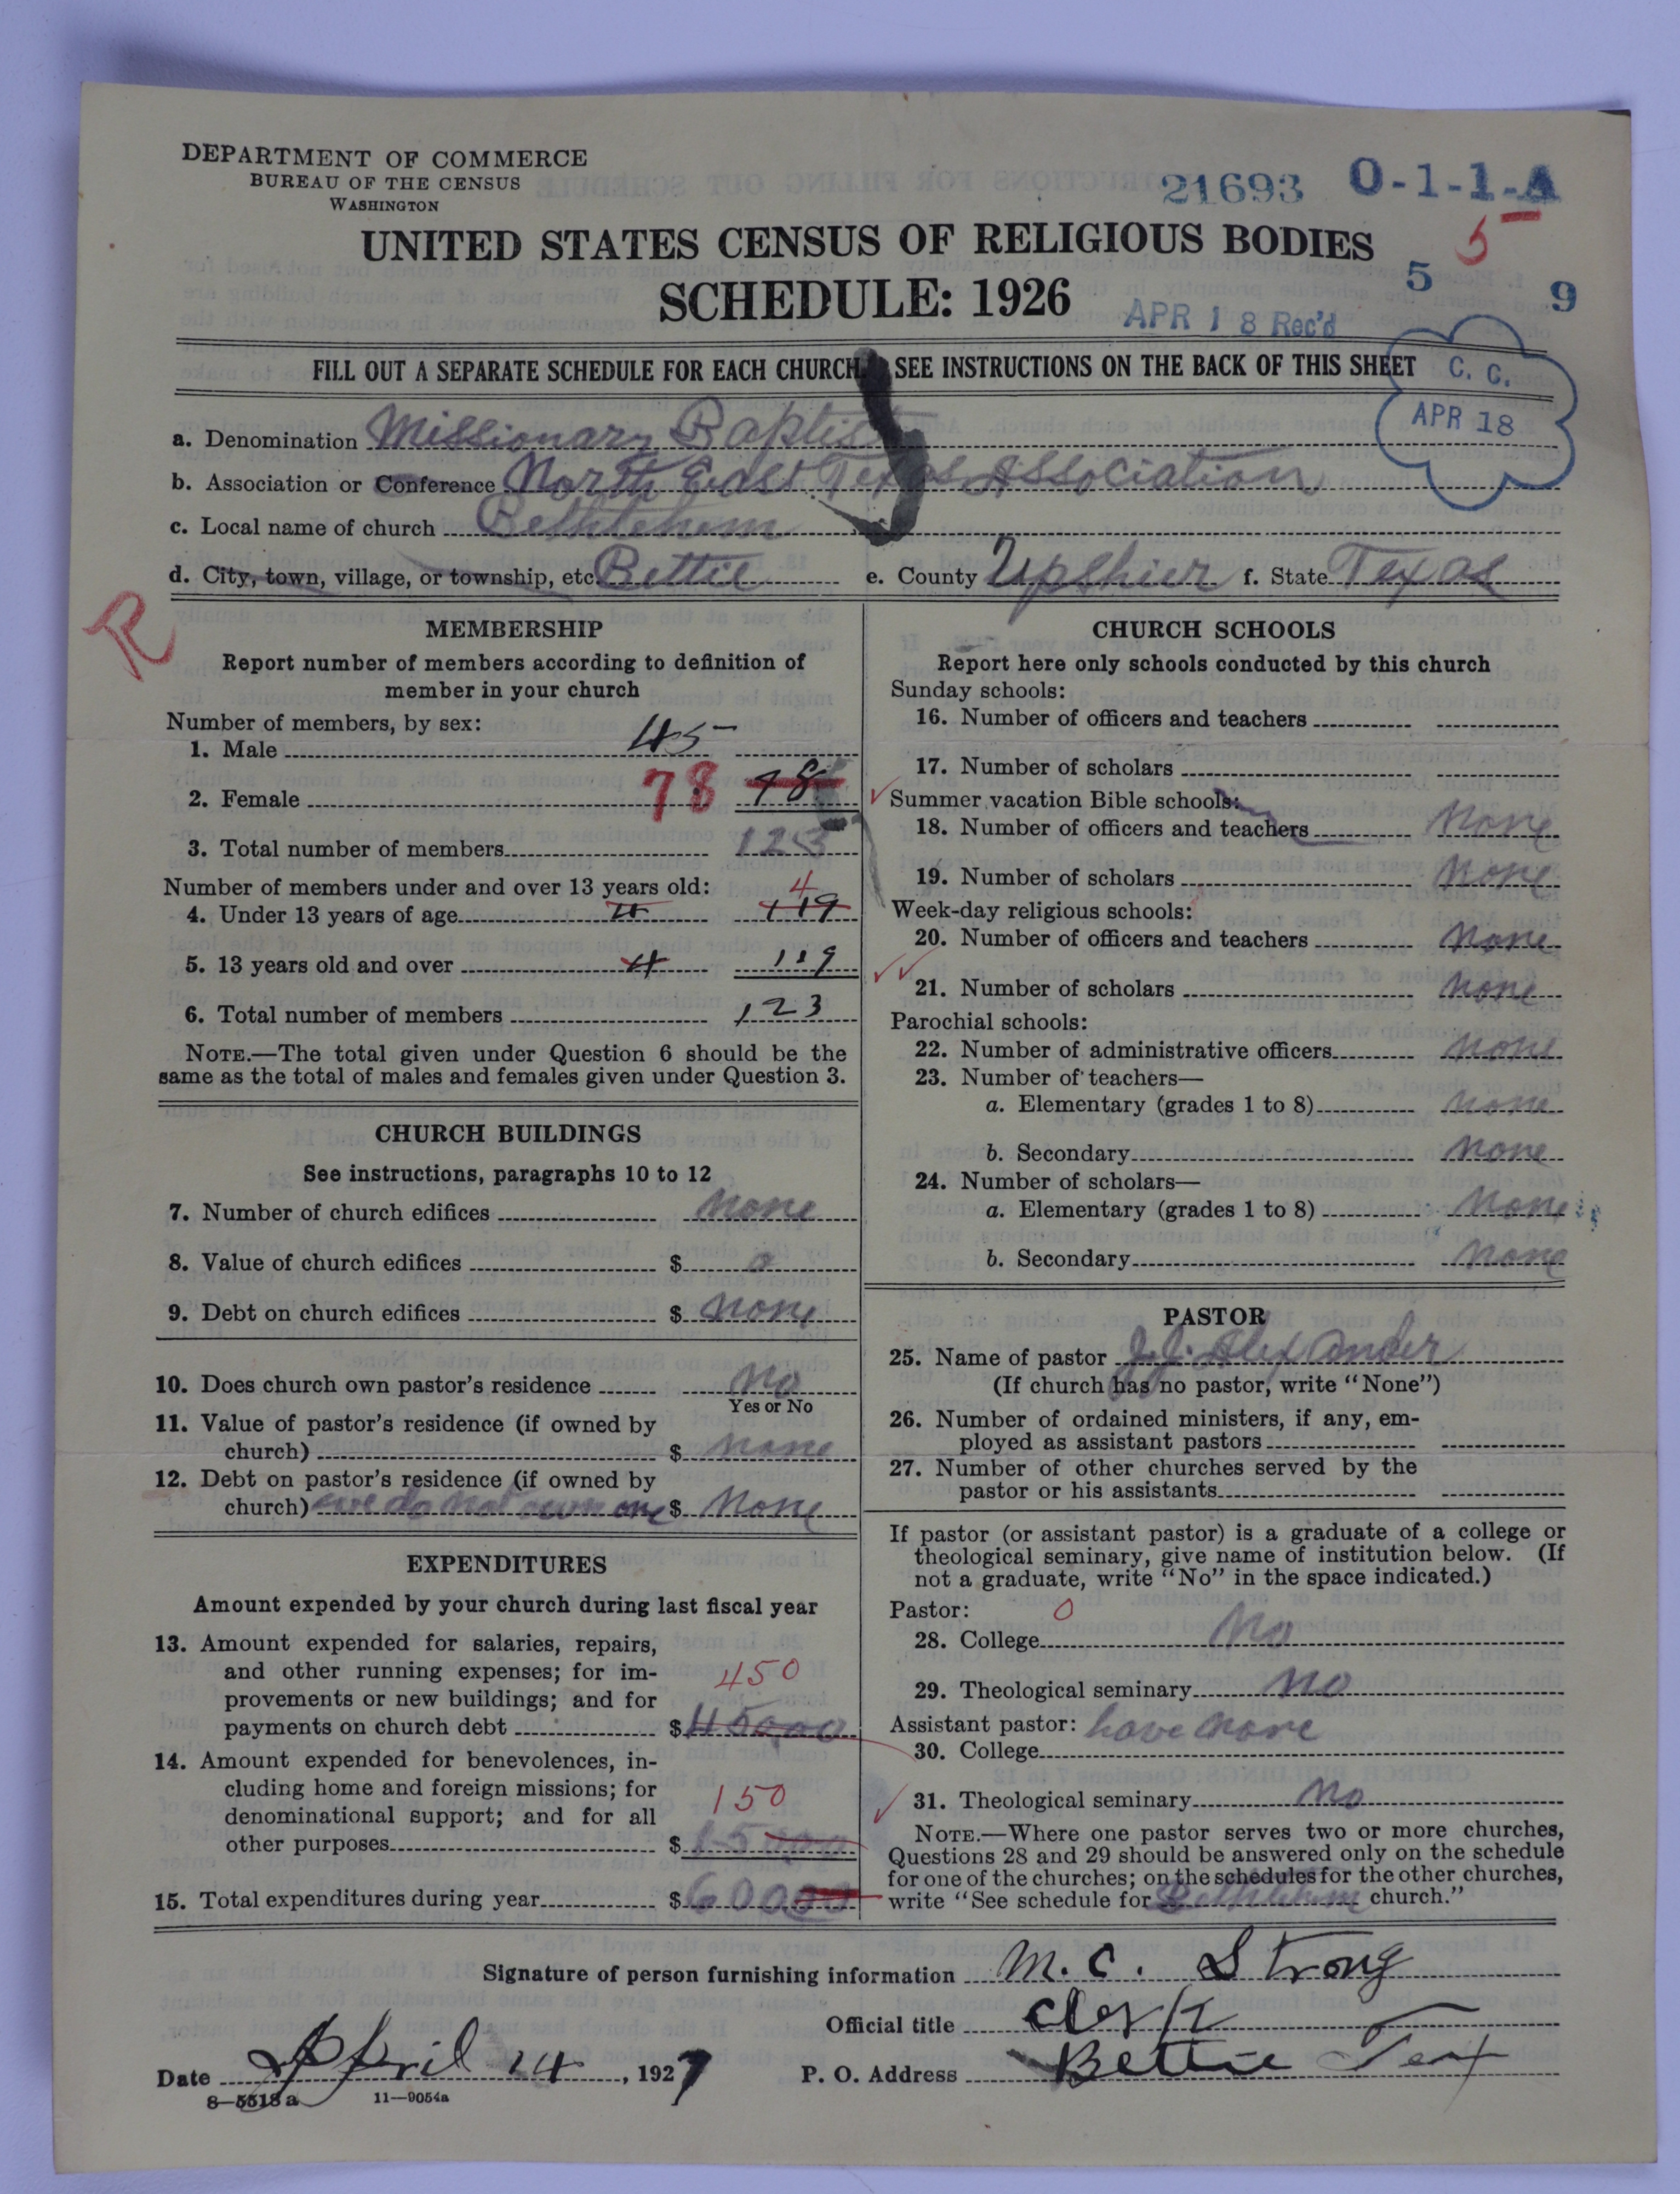 DEPARTMENT OF COMMERCE
BUREAU OF THE CENSUS
WASHINGTON
21693 0-1-1-A
5
UNITED STATES CENSUS OF RELIGIOUS BODIES
5 9
SCHEDULE: 1926
APR 18 Rec'd
FILL OUT A SEPARATE SCHEDULE FOR EACH CHURCH. SEE INSTRUCTIONS ON THE BACK OF THIS SHEET
C. C.
APR 18
a. Denomination Missionary Baptist
b. Association or Conference North East Texas Association
c. Local name of church Bethlehem
d. City, town, village, or township, etc. Bettie e. County Upshier f. State Texas
R
MEMBERSHIP
Report number of members according to definition of
member in your church
Number of members, by sex:
1. Male 45
2. Female 78 78
3. Total number of members 123
Number of members under and over 13 years old:
4. Under 13 years of age 4 119 4
5. 13 years old and over 4 119
6. Total number of members 123
NOTE.—The total given under Question 6 should be the
same as the total of males and females given under Question 3.
CHURCH BUILDINGS
See instructions, paragraphs 10 to 12
7. Number of church edifices none
8. Value of church edifices $ 0
9. Debt on church edifices $ none
10. Does church own pastor's residence no
Yes or No
11. Value of pastor's residence (if owned by
church) $ none
12. Debt on pastor's residence (if owned by
church) we do not own one $ None
EXPENDITURES
Amount expended by your church during last fiscal year
13. Amount expended for salaries, repairs,
and other running expenses; for im-
provements or new buildings; and for
450
payments on church debt $ 45000
14. Amount expended for benevolences, in-
cluding home and foreign missions; for
denominational support; and for all
150
other purposes $ 15000
15. Total expenditures during year $ 60000
CHURCH SCHOOLS
Report here only schools conducted by this church
Sunday schools:
16. Number of officers and teachers
17. Number of scholars
Summer vacation Bible schools:
18. Number of officers and teachers None
19. Number of scholars None
Week-day religious schools:
20. Number of officers and teachers none
21. Number of scholars none
Parochial schools:
22. Number of administrative officers none
23. Number of teachers—
a. Elementary (grades 1 to 8) none
b. Secondary none
24. Number of scholars—
a. Elementary (grades 1 to 8) none
b. Secondary none
PASTOR
25. Name of pastor J.J. Alexander
(If church has no pastor, write "None")
26. Number of ordained ministers, if any, em-
ployed as assistant pastors
27. Number of other churches served by the
pastor or his assistants
If pastor (or assistant pastor) is a graduate of a college or
theological seminary, give name of institution below. (If
not a graduate, write "No" in the space indicated.)
Pastor: 0
28. College No
29. Theological seminary No
Assistant pastor: have none
30. College
31. Theological seminary No
NOTE.—Where one pastor serves two or more churches,
Questions 28 and 29 should be answered only on the schedule
for one of the churches; on the schedules for the other churches,
write "See schedule for Bethlehem church."
Signature of person furnishing information M. C. Strong
Official title Clerk
Date April 14, 1927 P. O. Address Bettie Tex
8—5518a 11—9054a